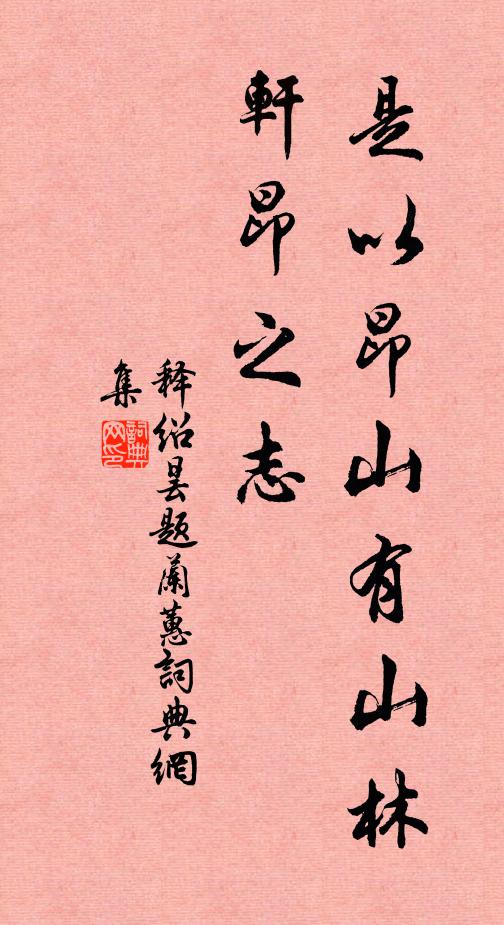 是以昂山有山林
軒昂之志
释绍昙题蘭蕙詞典網
集
詞典网印